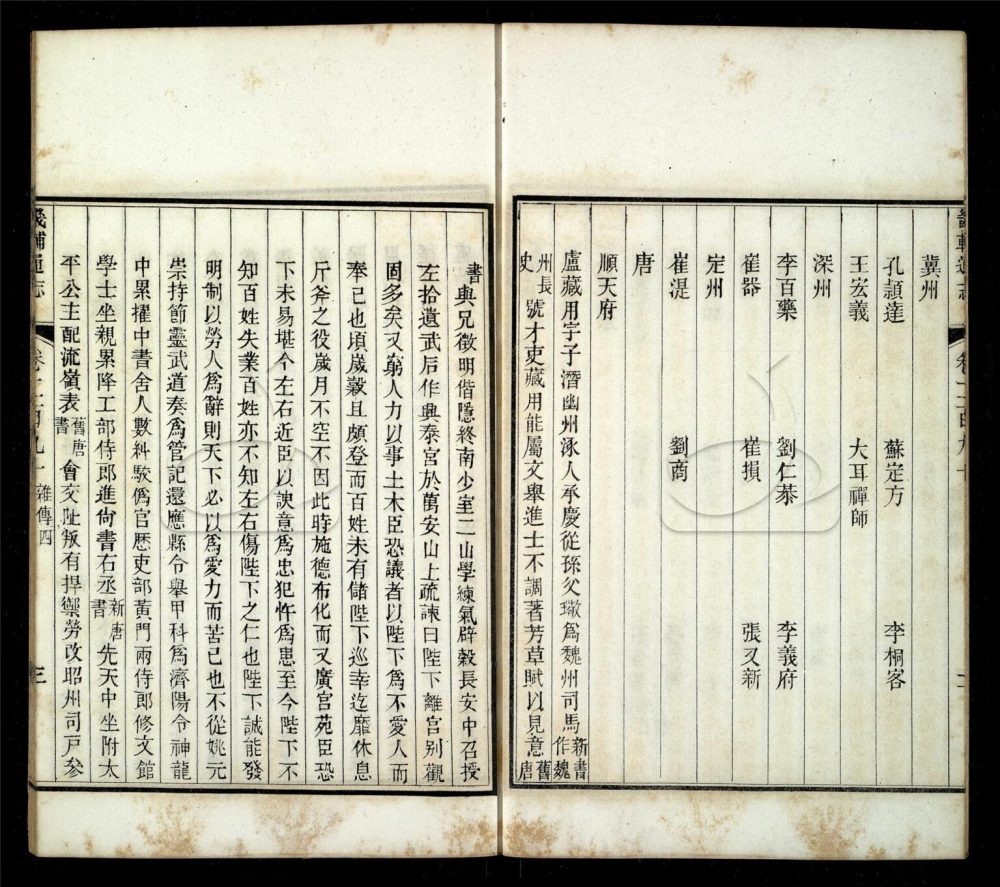 畿輔通志
冀州
孔頴達 蘇定方 李桐客
王宏義 大耳禪師
深州
李百藥 劉仁恭 李義府
崔器 崔損 張又新
定州
崔湜 劉商
唐
順天府
盧藏用字子潛幽州涿人承慶從孫父璥爲魏州司馬新書作魏
州長史號才吏藏用能屬文舉進士不調著芳草賦以見意舊唐
書與兄徵明偕隱終南少室二山學練氣辟穀長安中召授
左拾遺武后作興泰宮於萬安山上疏諫曰陛下離宮別觀
固多矣又窮人力以事土木臣恐議者以陛下爲不愛人而
奉己也頃歲穀且頗登而百姓未有儲陛下巡幸迄靡休息
斤斧之役歲月不空不因此時施德布化而又廣宮苑臣恐
下未易堪今左右近臣以諛意爲忠犯忤爲患至今陛下不
知百姓失業百姓亦不知左右傷陛下之仁也陛下誠能發
明制以勞人爲辭則天下必以爲愛力而苦己也不從姚元
崇持節靈武道奏爲管記還應縣令舉甲科爲濟陽令神龍
中累擢中書舍人數糾駮僞官歴吏部黃門兩侍郎修文館
學士坐親累降工部侍郎進尙書右丞新唐書先天中坐附太
平公主配流嶺表舊唐書會交阯叛有捍禦勞改昭州司戸參
畿輔通志 雜傳四 三